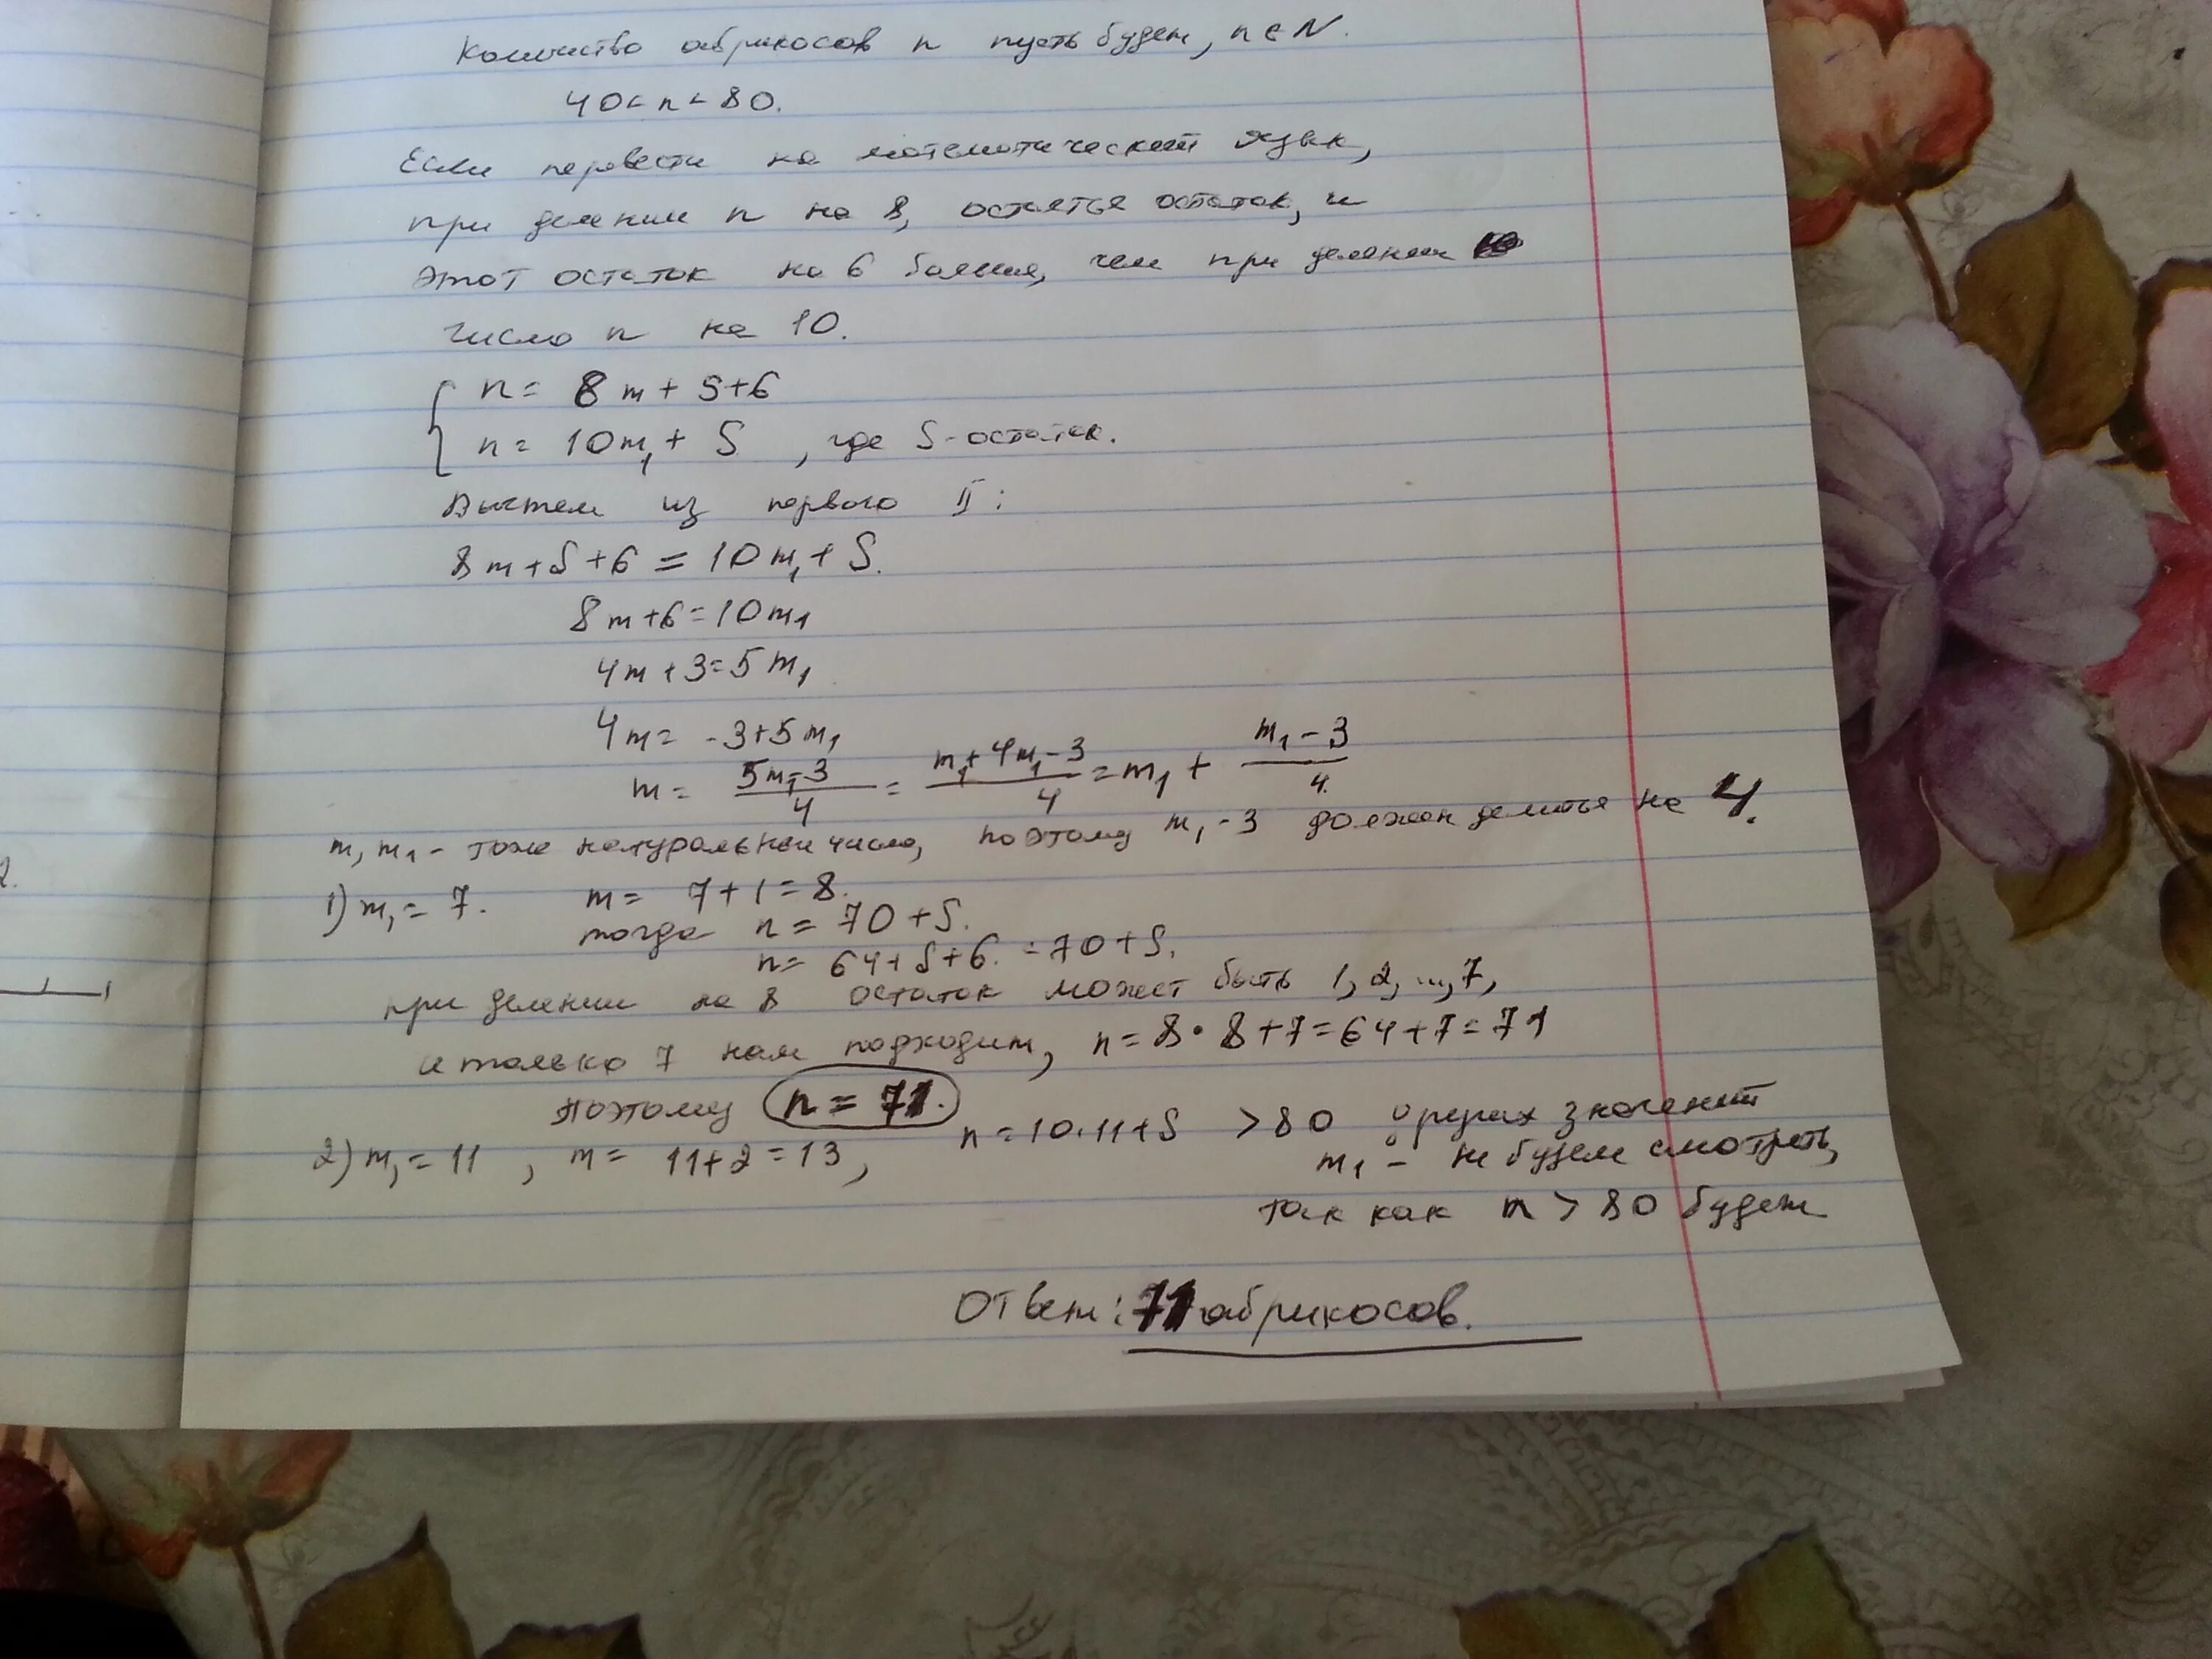 Количество абрикосов n пусть будет, n ∈ N.
40 < n < 80.
Если перевести на математический язык,
при делении n на 8, остятся остаток, и
этот остаток на 6 больше, чем при делении
число n на 10.
{ n = 8m + S + 6
n = 10m₁ + S , где S - остаток.
Вычтем из первого II:
8m + S + 6 = 10m₁ + S.
8m + 6 = 10m₁
4m + 3 = 5m₁
4m = -3 + 5m₁
m = (5m₁ - 3)/4 = (m₁ + 4m₁ - 3)/4 = m₁ + (m₁ - 3)/4.
m, m₁ - тоже натуральные числа, поэтому m₁ - 3 должен делится на 4.
1) m₁ = 7. m = 7 + 1 = 8.
тогда n = 70 + S.
n = 64 + S + 6. = 70 + S.
при делении на 8 остаток может быть 1, 2, ..., 7,
и только 7 нам подходит, n = 8 · 8 + 7 = 64 + 7 = 71
поэтому n = 71.
2) m₁ = 11 , m = 11 + 2 = 13, n = 10 · 11 + S > 80 других значений
m₁ - не будем смотреть,
так как n > 80 будет
Ответ: 71 абрикосов.
2.